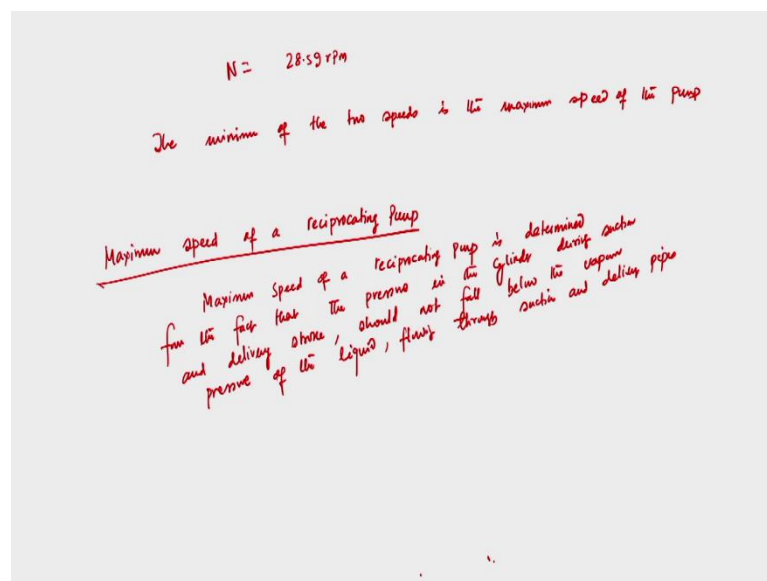 N = 28.59 rpm
The minimum of the two speeds is the maximum speed of the pump
Maximum speed of a reciprocating Pump
Maximum Speed of a reciprocating pump is determined
from the fact that the pressure in the cylinder during suction
and delivery stroke, should not fall below the vapour
pressure of the liquid, flowing through suction and delivery pipes